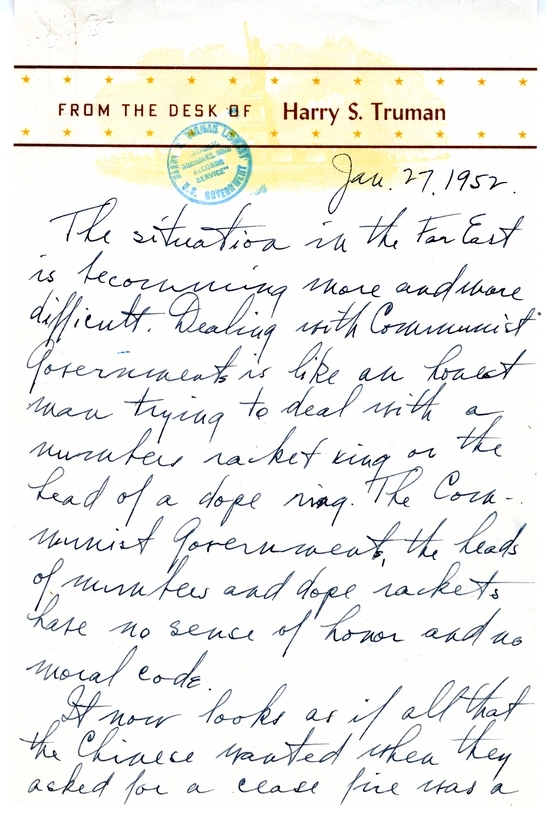 FROM THE DESK OF Harry S. Truman
HARRY S. TRUMAN LIBRARY
"NATIONAL
ARCHIVES AND
RECORDS
SERVICE"
U.S. GOVERNMENT
Jan. 27, 1952.
The situation in the Far East
is becomming more and more
difficult. Dealing with Communist
Governments is like an honest
man trying to deal with a
numbers racket king or the
head of a dope ring. The Com-
munist Governments, the heads
of numbers and dope rackets
have no sense of honor and no
moral code.
It now looks as if all that
the Chinese wanted when they
asked for a cease fire was a